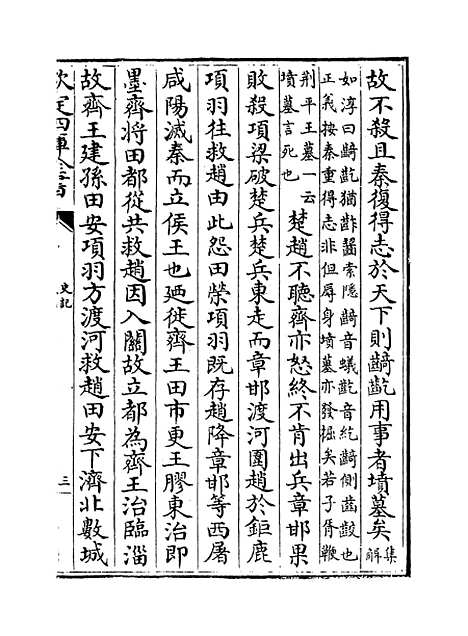 故不殺且秦復得志於天下則齮齕用事者墳墓矣集解
如淳曰齮齕猶齚齧索隱齮音蟻齕音紇齮側齒齩也
正義按秦重得志非但辱身墳墓亦發掘矣若子胥鞭
荆平王墓一云
墳墓言死也
楚趙不聽齊亦怒終不肯出兵章邯果
敗殺項梁破楚兵楚兵東走而章邯渡河圍趙於鉅鹿
項羽往救趙由此怨田榮項羽既存趙降章邯等西屠
咸陽滅秦而立侯王也廼徙齊王田市更王膠東治即
墨齊將田都從共救趙因入關故立都為齊王治臨淄
故齊王建孫田安項羽方渡河救趙田安下濟北數城
欽定四庫全書
史記
三